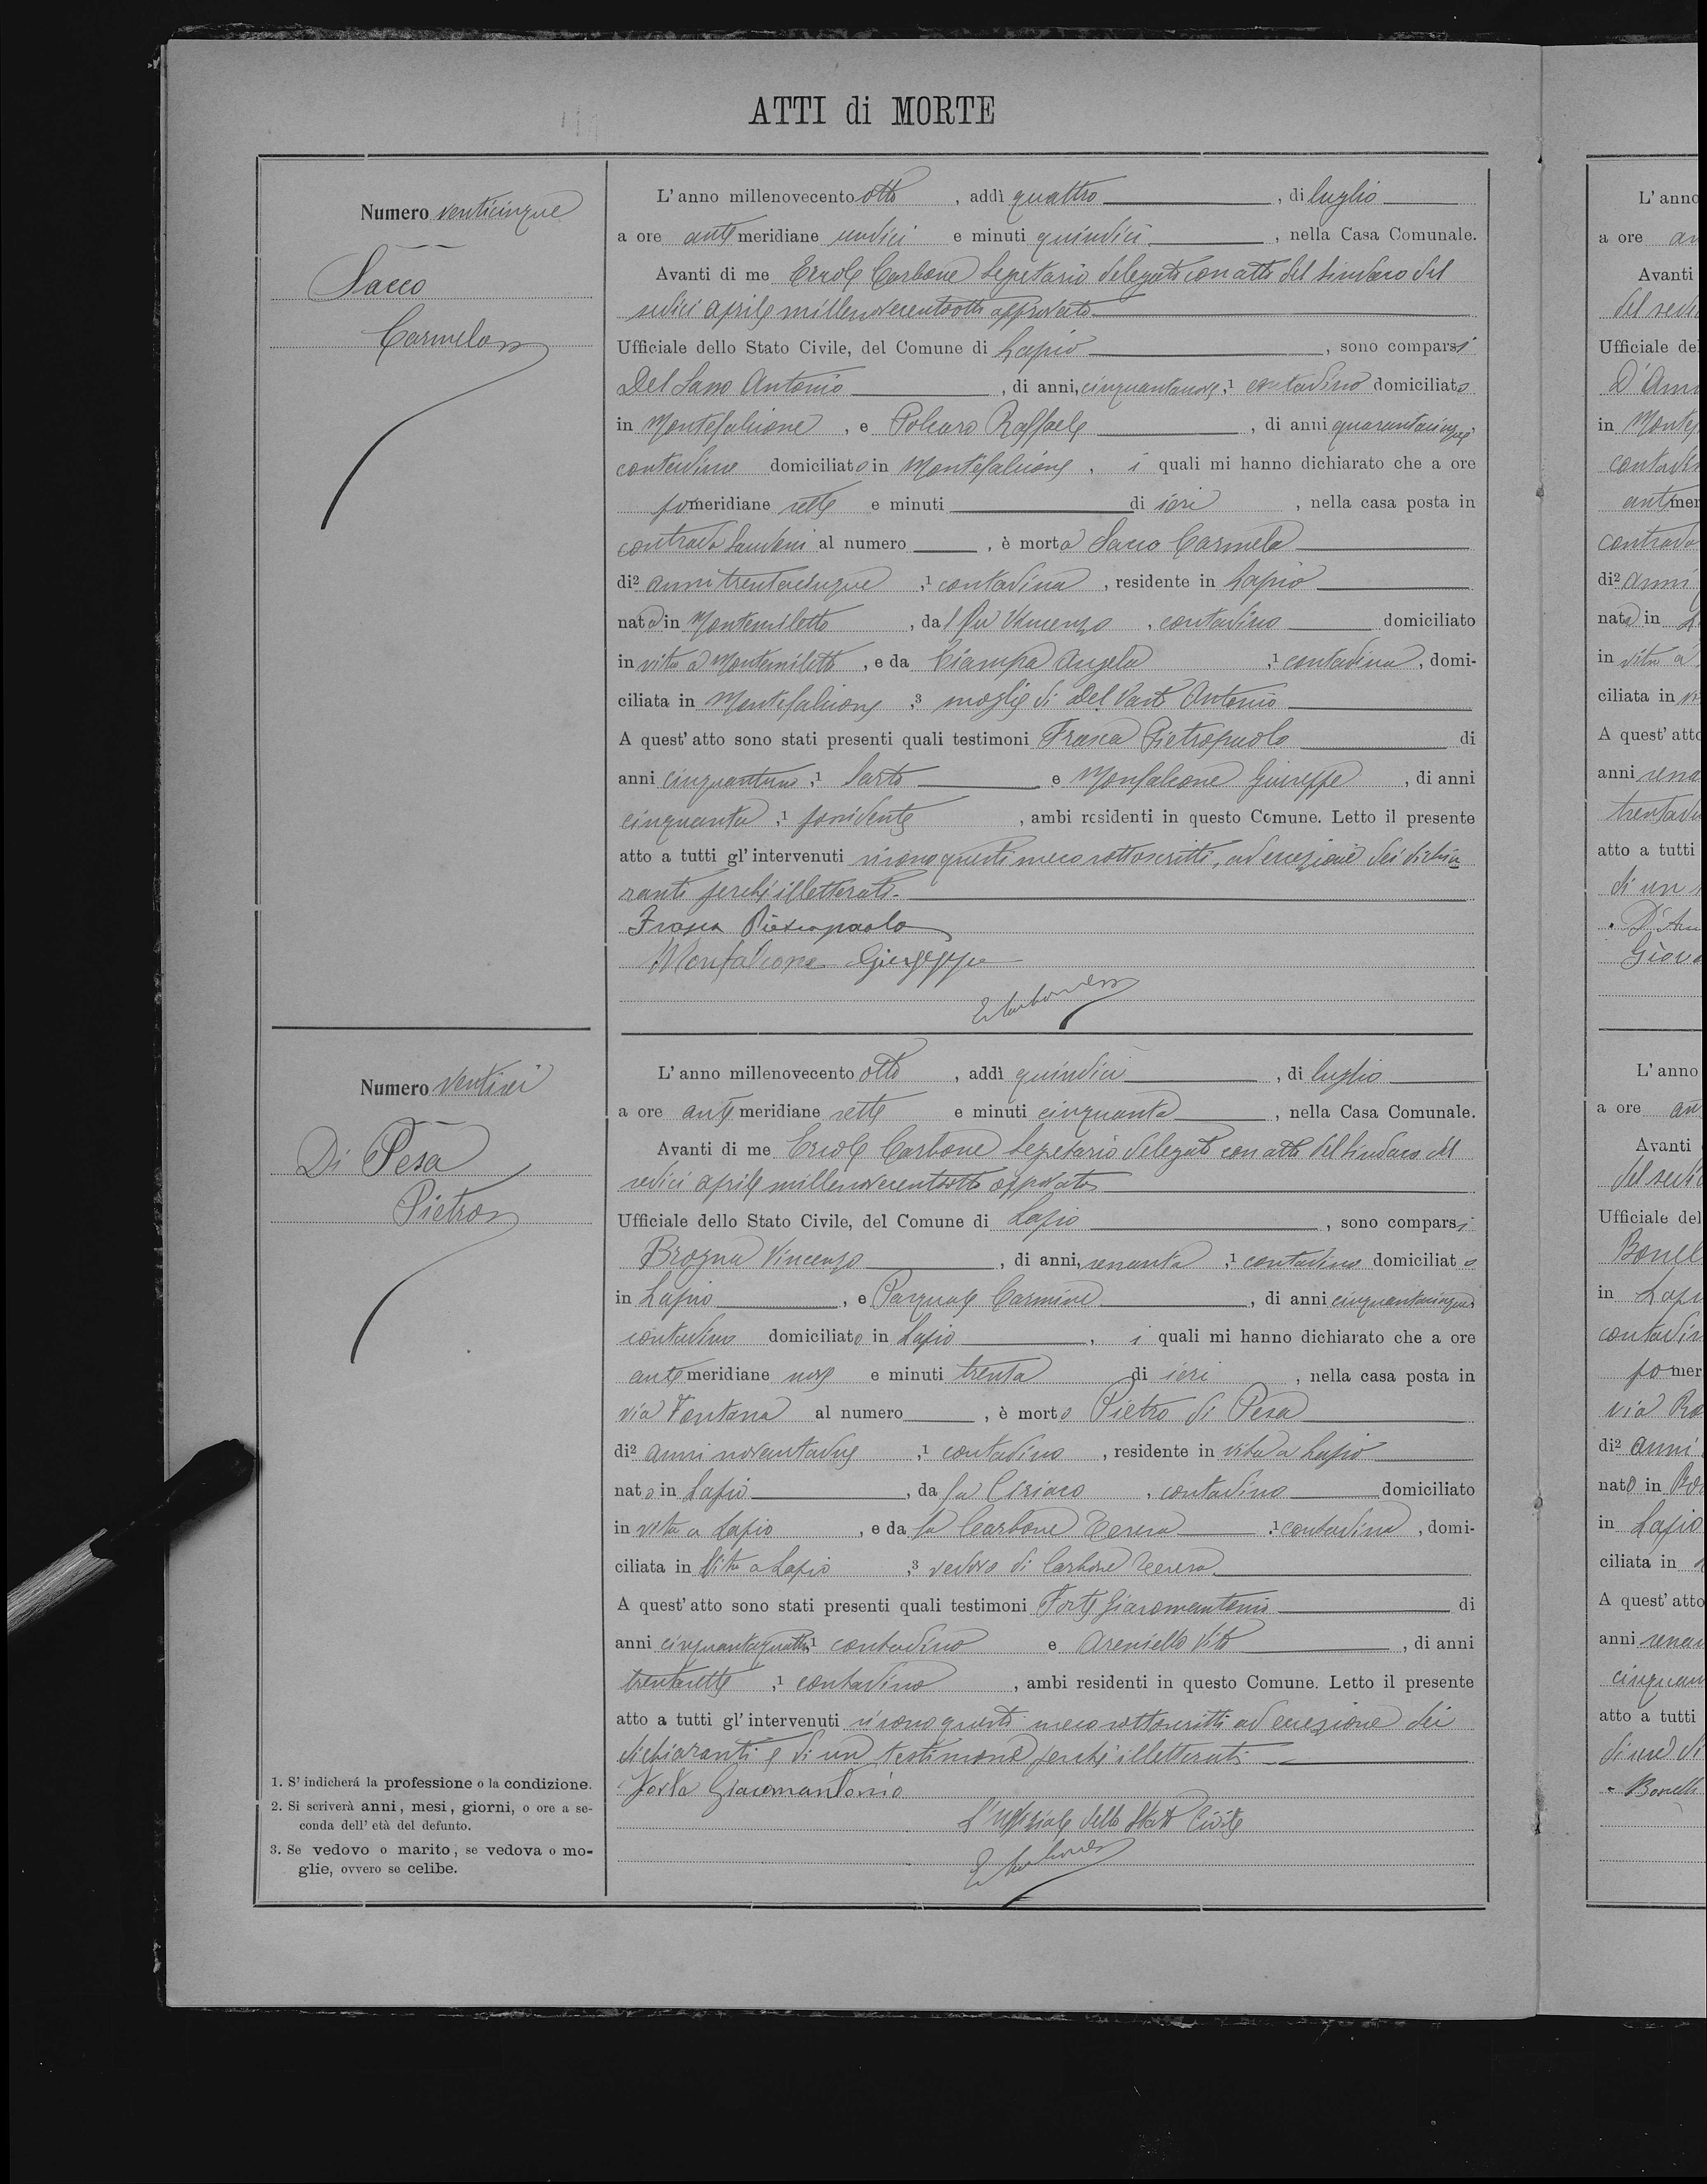 ATTI di MORTE
Numero venticinque
Sacco
Carmela
L'anno millenovecento otto, addì quattro, di luglio
a ore antimeridiane undici e minuti quindici, nella Casa Comunale.
Avanti di me Ercole Carbone Segretario delegato con atto del Sindaco del
sedici aprile millenovecentootto approvato
Ufficiale dello Stato Civile, del Comune di Lapio, sono comparsi
Antonio, di anni, cinquantanove, 1 contadino domiciliato
in Montefalcione, e Polcaro Raffaele, di anni quarantacinque,
contadino domiciliato in Montefalcione, i quali mi hanno dichiarato che a ore
pomeridiane sette e minuti di ieri, nella casa posta in
contrada al numero, è morta Sacco Carmela
di2 anni trentacinque, 1 contadina, residente in Lapio
nata in Montemiletto, dal fu Vincenzo, contadino domiciliato
in vita a Montemiletto, e da Ciampa Angela, 1 contadina, domi-
ciliata in Montefalcione, 3 moglie di Del Antonio
A quest'atto sono stati presenti quali testimoni Frasca Pietropaolo di
anni cinquantuno, 1 Sarto e Monfalcone Giuseppe, di anni
cinquanta, 1 possidente, ambi residenti in questo Comune. Letto il presente
atto a tutti gl'intervenuti si sono questi meco sottoscritti, ad eccezione dei dichia
ranti perché illetterati.
Frasca Pietropaolo
Monfalcone Giuseppe
E Carbone
Numero ventisei
Di Pesa
Pietro
L'anno millenovecento otto, addì quindici, di luglio
a ore antimeridiane sette e minuti cinquanta, nella Casa Comunale.
Avanti di me Ercole Carbone Segretario delegato con atto del Sindaco del
sedici aprile millenovecentootto approvato
Ufficiale dello Stato Civile, del Comune di Lapio, sono comparsi
Brogna Vincenzo, di anni, sessanta, 1 contadino domiciliato
in Lapio, e Pasquale Carmine, di anni cinquantacinque
contadino domiciliato in Lapio, i quali mi hanno dichiarato che a ore
antimeridiane nove e minuti trenta di ieri, nella casa posta in
via Fontana al numero, è morto Pietro di Pesa
di2 anni novantadue, 1 contadino, residente in vita a Lapio
nato in Lapio, da fu Ciriaco, contadino domiciliato
in vita a Lapio, e da fu Carbone Teresa, 1 contadina, domi-
ciliata in vita a Lapio, 3 vedovo di Carbone Teresa
A quest'atto sono stati presenti quali testimoni Forte Giacomantonio di
anni cinquantaquattro 1 contadino e Areniello Vito, di anni
trentasette, 1 contadino, ambi residenti in questo Comune. Letto il presente
atto a tutti gl'intervenuti si sono questi meco sottoscritti ad eccezione dei
dichiaranti e di un testimone perché illetterati
Forte Giacomantonio
L'uffiziale dello Stato Civile
E Carbone
1. S'indicherà la professione o la condizione.
2. Si scriverà anni, mesi, giorni, o ore a se-
conda dell'età del defunto.
3. Se vedovo o marito, se vedova o mo-
glie, ovvero se celibe.
L'anno
a ore
Avanti
Ufficiale de
in
ciliata in
A quest'atto
anni
atto a tutti
L'anno
a ore
Avanti
Ufficiale del
in Lapi
nato in
in Lapio
ciliata in
A quest'atto
anni
atto a tutti